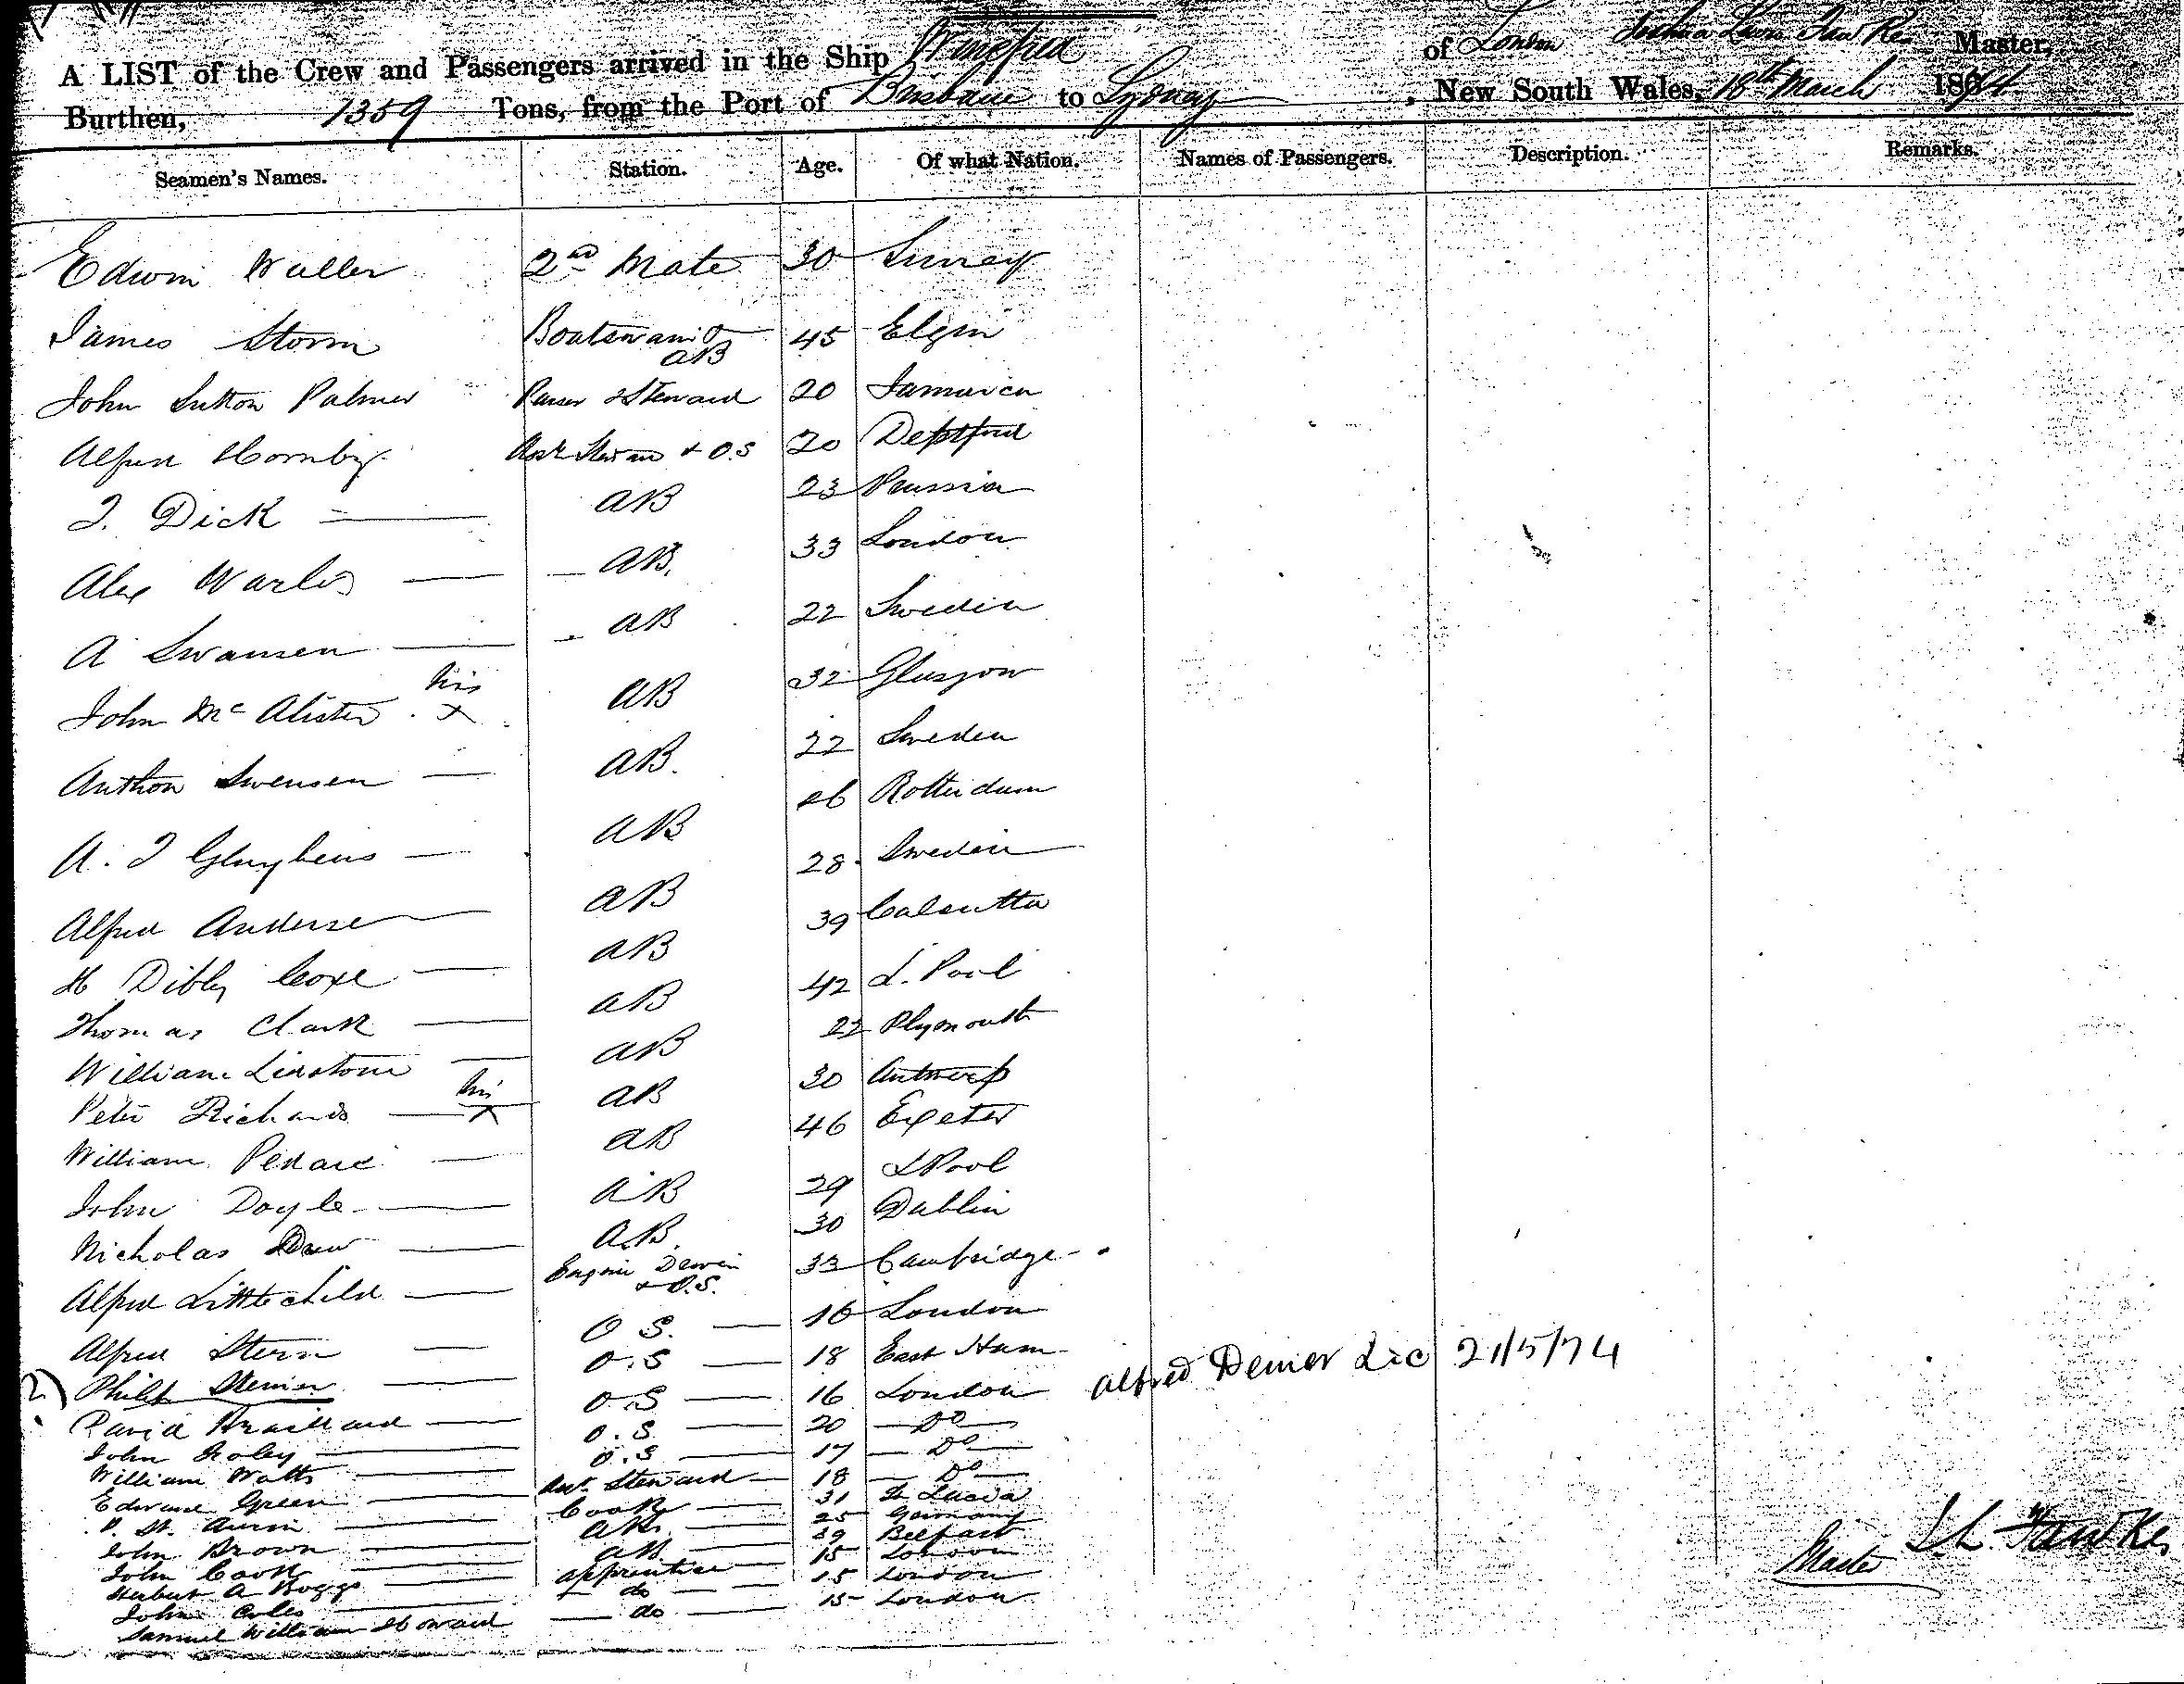 A LIST of the Crew and Passengers arrived in the Ship Winefred of London Joshua Lewis Fawkes Master,
Burthen, 1359 Tons, from the Port of Brisbane to Sydney, New South Wales, 18th March 1874
Seamen's Names. Station. Age. Of what Nation. Names of Passengers. Description. Remarks.
Edwin Waller 2nd Mate 30 Surrey
James Storm Boatswain & AB 45 Elgin
John Sutton Palmer Purser & Steward 20 Jamaica
Alfred Hornby Asst Steward & O.S 20 Deptford
J. Dick AB 23 Prussia
Alex AB. 33 London
A Swansen AB 22 Sweden
John McAlister his x AB 32 Glasgow
Anthon Swensen AB. 22 Sweden
A. J AB 26 Rotterdam
Alfred Anderse AB 28 Sweden
H Dibly Coxe AB 39 Calcutta
Thomas Clark AB 42 L. Pool
William AB 22 Plymouth
Peter Richards his x AB 30 Antwerp
William AB 46 Exeter
John Doyle AB 29 LPool
Nicholas Drew A.B. 30 Dublin
Alfred Littlechild Engine Driver & O.S. 33 Cambridge
Alfred Stern O S. 16 London
2) Philip Steiner O.S 18 East Ham Alfred Demer Lic 21/5/74
David O.S 16 London
John Foley O.S. 20 Do
William Watts O.S 17 Do
Edward Green Asst. Steward 18 Do
P. St. Cook 31 St Lucia
John Brown AB. 25 Germany
John Cook AB 39 Belfast
Herbert A Boggs apprentice 15 London
John Coles do 15 London
Samuel William Howard do 15 London
J.L. Fawkes
Master